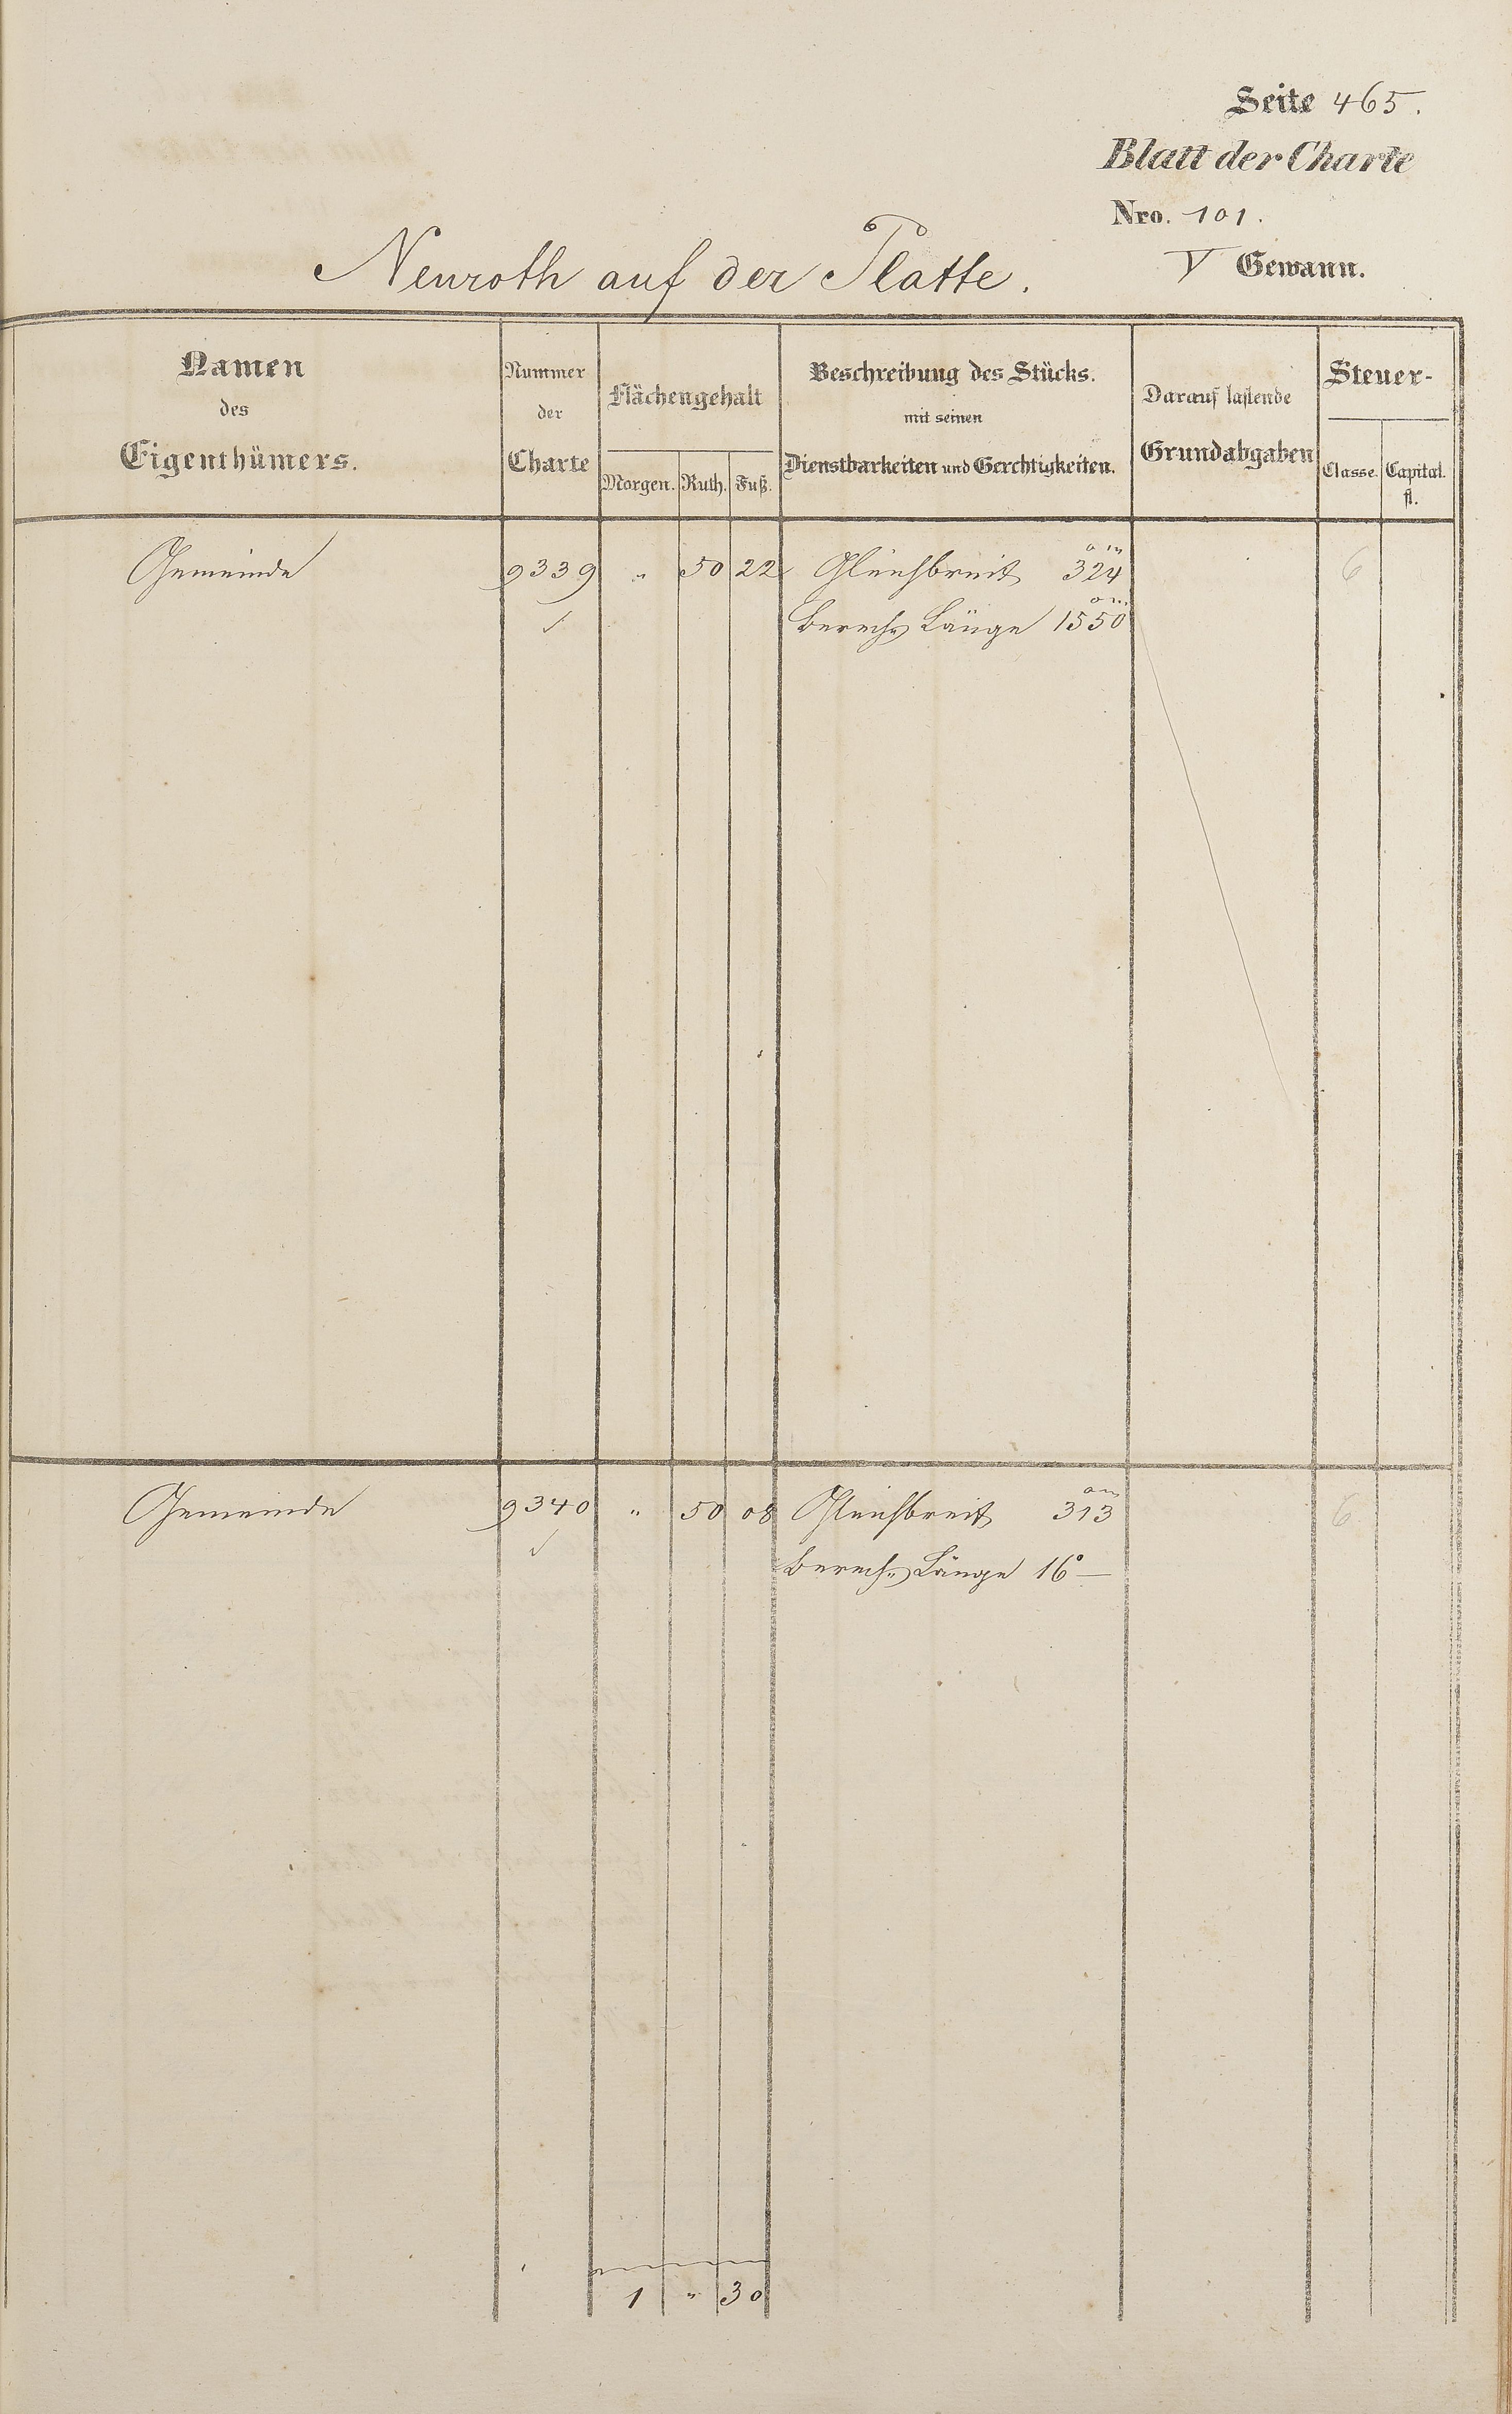 Seite 465.
Blatt der Charte
Nro. 101.
V Gewann.
Neuroth auf der Platte.
Namen
des
Eigenthümers.
Nummer
der
Charte
Flächengehalt
Morgen. Ruth. Fuß.
Beschreibung des Stücks.
mit seinen
Dienstbarkeiten und Gerechtigkeiten.
Darauf lastende
Grundabgaben
Steuer-
Classe. Capital.
fl.
Gemeinde 9339 " 50 22 Gleichbreit 3°2'4" 6
✓ berech. Länge 15°5'0"
Gemeinde 9340 " 50 08 Gleichbreit 3°1'3" 6
✓ berech. Länge 16° —
1 " 30